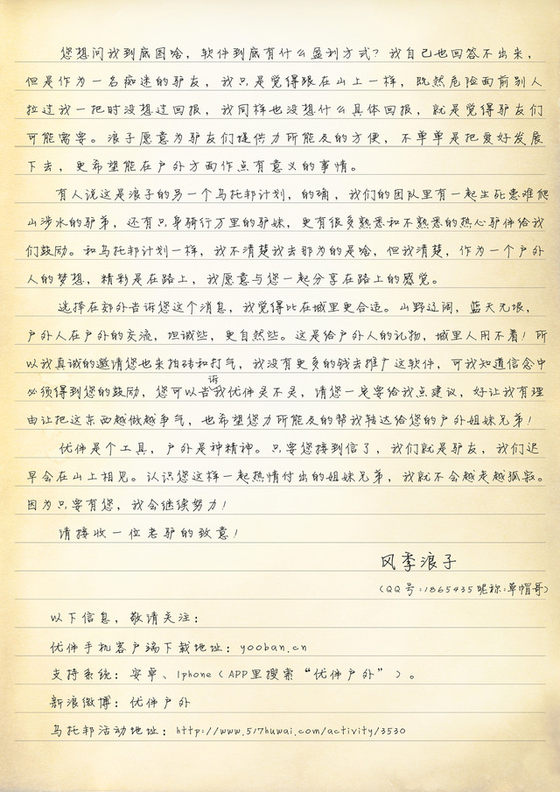 您想问我到底图啥，软件到底有什么盈利方式？我自己也回答不出来，
但是作为一名痴迷的驴友，我只是觉得跟在山上一样，既然危险面前别人
拉过我一把时没想过回报，我同样也没想什么具体回报，就是觉得驴友们
可能需要。浪子愿意为驴友们提供力所能及的方便，不单单是把爱好发展
下去，更希望能在户外方面作点有意义的事情。
有人说这是浪子的另一个乌托邦计划，的确，我们的团队里有一起生死患难爬
山涉水的驴弟，还有只身骑行万里的驴妹，更有很多熟悉和不熟悉的热心驴伴给我
们鼓励。和乌托邦计划一样，我不清楚我去那为的是啥，但我清楚，作为一个户外
人的梦想，精彩是在路上，我愿意与您一起分享在路上的感觉。
选择在郊外告诉您这个消息，我觉得比在城里更合适。山野辽阔，蓝天无垠，
户外人在户外的交流，坦诚些，更自然些。这是给户外人的礼物，城里人用不着！所
以我真诚的邀请您也来拍砖和打气，我没有更多的钱去推广这软件，可我知道信念中
必须得到您的鼓励，您可以告诉我优伴灵不灵，请您一定要给我点建议，好让我有理
由让把这东西越做越争气，也希望您力所能及的帮我转达给您的户外姐妹兄弟！
优伴是个工具，户外是种精神。只要您接到信了，我们就是驴友，我们迟
早会在山上相见。认识您这样一起热情付出的姐妹兄弟，我就不会越走越孤寂。
因为只要有您，我会继续努力！
请接收一位老驴的致意！
风季浪子
（QQ号：1865435昵称：草帽哥）
以下信息，敬请关注：
优伴手机客户端下载地址：yooban.cn
支持系统：安卓、Iphone（APP里搜索“优伴户外”）。
新浪微博：优伴户外
乌托邦活动地址：http://www.517huwai.com/activity/3530